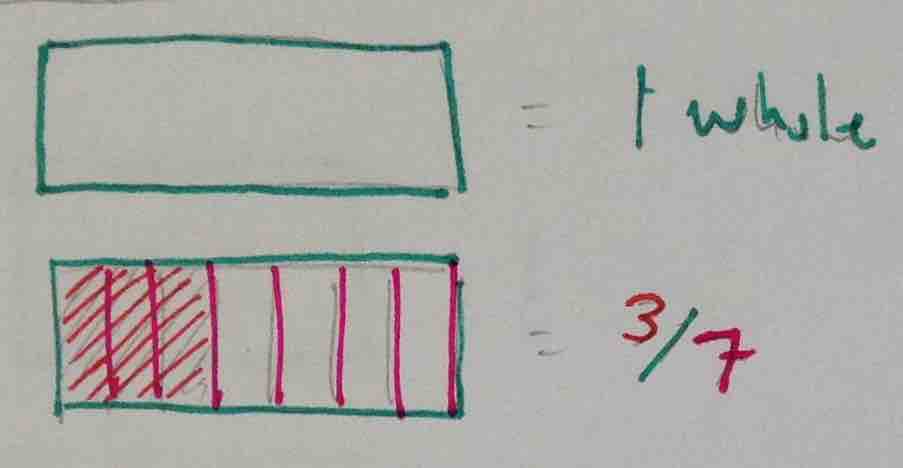 = 1 whole
= 3/7